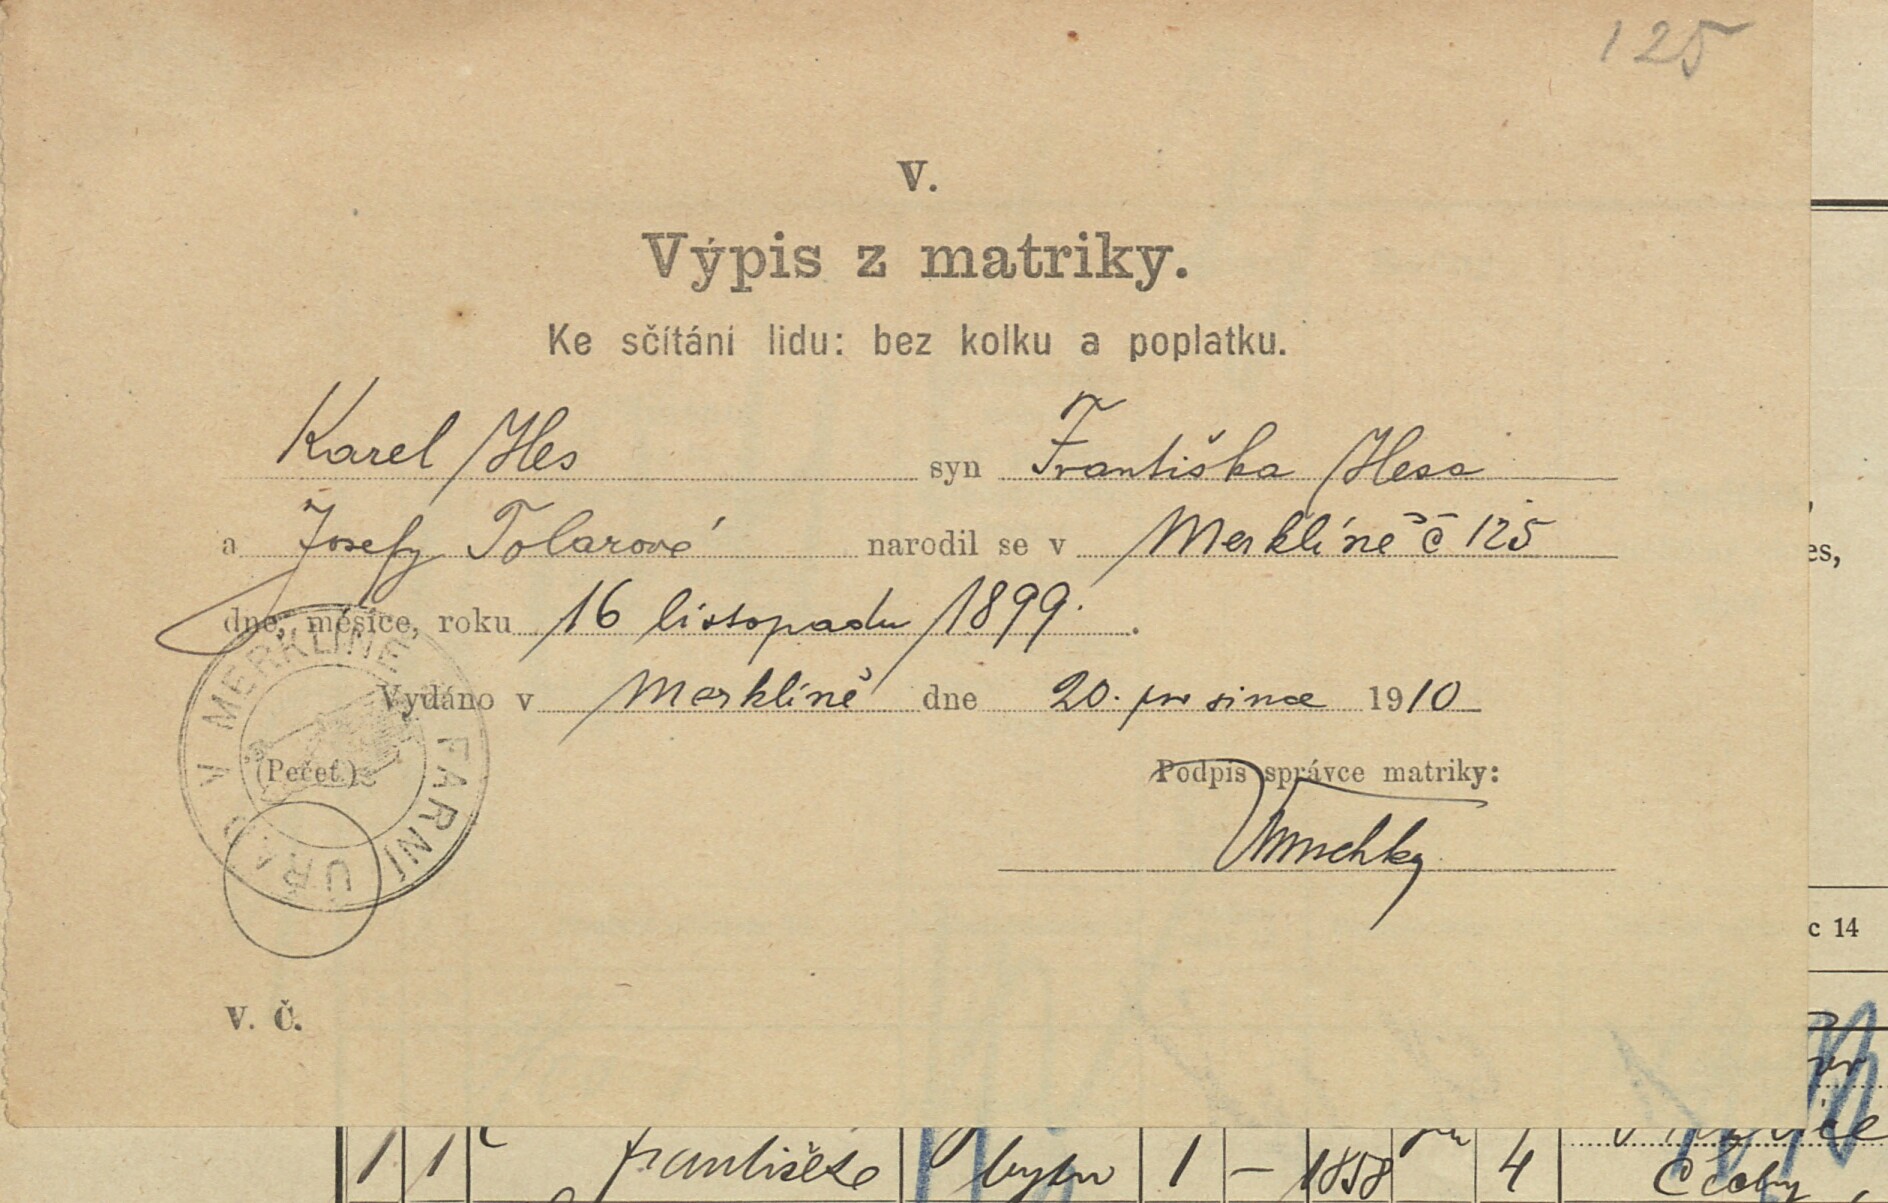 125
V.
Výpis z matriky.
Ke sčítání lidu: bez kolku a poplatku.
Karel Hes syn Františka Hesa
a Josefy Tolarové narodil se v Merklíně č 125
dne, měsíce, roku 16 listopadu 1899.
Vydáno v Merklíně dne 20. prosince 1910
(Pečeť.)
Podpis správce matriky:
FARNÍ ÚŘAD V MERKLÍNĚ
V. Č.
es,
c 14
1 1 Františka bytu 1 — 1858 4